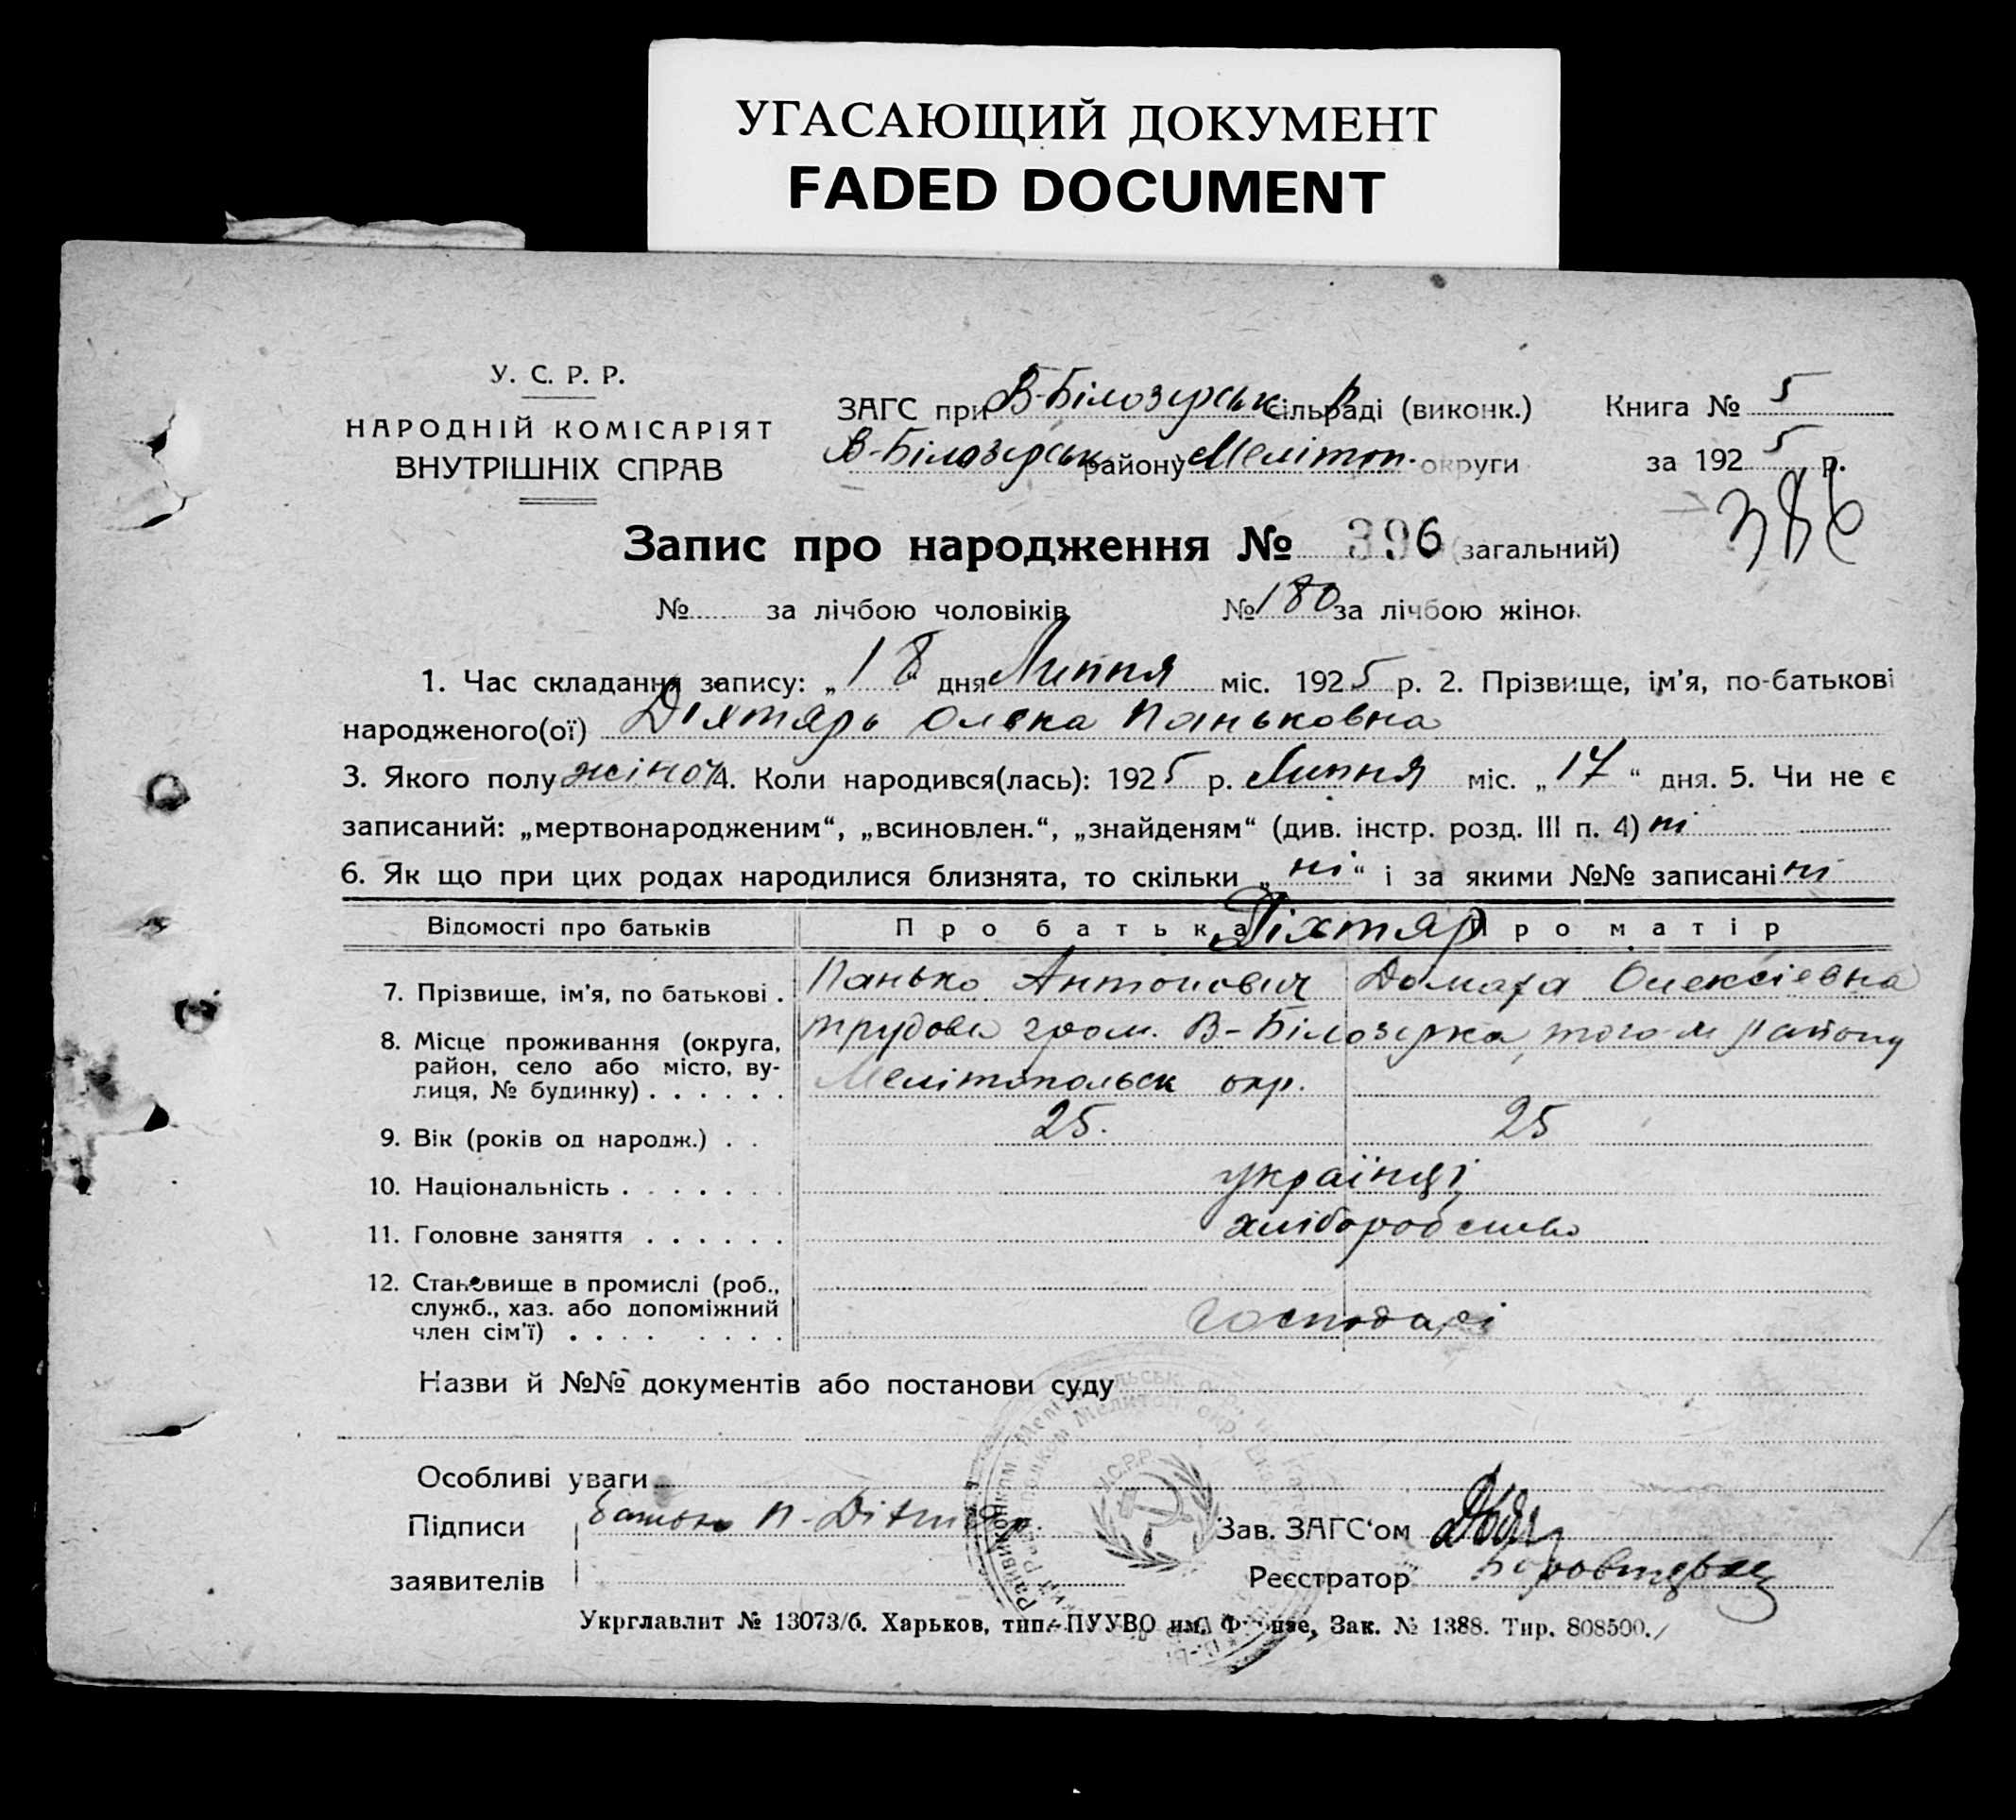 УГАСАЮЩИЙ ДОКУМЕНТ
FADED DOCUMENT
У. С. Р. Р.
НАРОДНІЙ КОМІСАРІЯТ
ВНУТРІШНІХ СПРАВ
ЗАГС при В-Білозерськ сільраді (виконк.)
В-Білозерськ району Меліто​п. округи
Книга № 5
за 1925 р.
386
Запис про народження № 396 (загальний)
№ за лічбою чоловіків № 180 за лічбою жінок
1. Час складання запису: „18“ дня Липня міс. 1925 р. 2. Прізвище, ім'я, по-батькові
народженого(ої) Діхтярь Олена Паньковна
3. Якого полу жіноч 4. Коли народився(лась): 1925 р. Липня міс. „17“ дня. 5. Чи не є
записаний: „мертвонародженим“, „всиновлен.“, „знайденям“ (див. інстр. розд. III п. 4) ні
6. Як що при цих родах народилися близнята, то скільки „ні“ і за якими №№ записані ні
Відомості про батьків Про батька Діхтяр Про матір
7. Прізвище, ім'я, по батькові . Панько Антонович Домаха Олексіевна
8. Місце проживання (округа, трудова гром. В-Білозерка, того-ж району
район, село або місто, ву-
лиця, № будинку) . . . . . . Мелітопольськ окр.
9. Вік (років од народж.) . . 25. 25
10. Національність . . . . . . . українці
11. Головне заняття . . . . . . хліборобство
12. Становище в промислі (роб.,
служб., хаз. або допоміжний
член сім'ї) . . . . . . . . господарі
Назви й №№ документів або постанови суду
Особливі уваги
Підписи Батько П-Діхтяр.
заявителів
У.С.Р.Р.
Зав. ЗАГС'ом
Реєстратор
Укрглавлит № 13073/б. Харьков, тип. ПУУВО им. Фрунзе, Зак. № 1388. Тир. 808500.